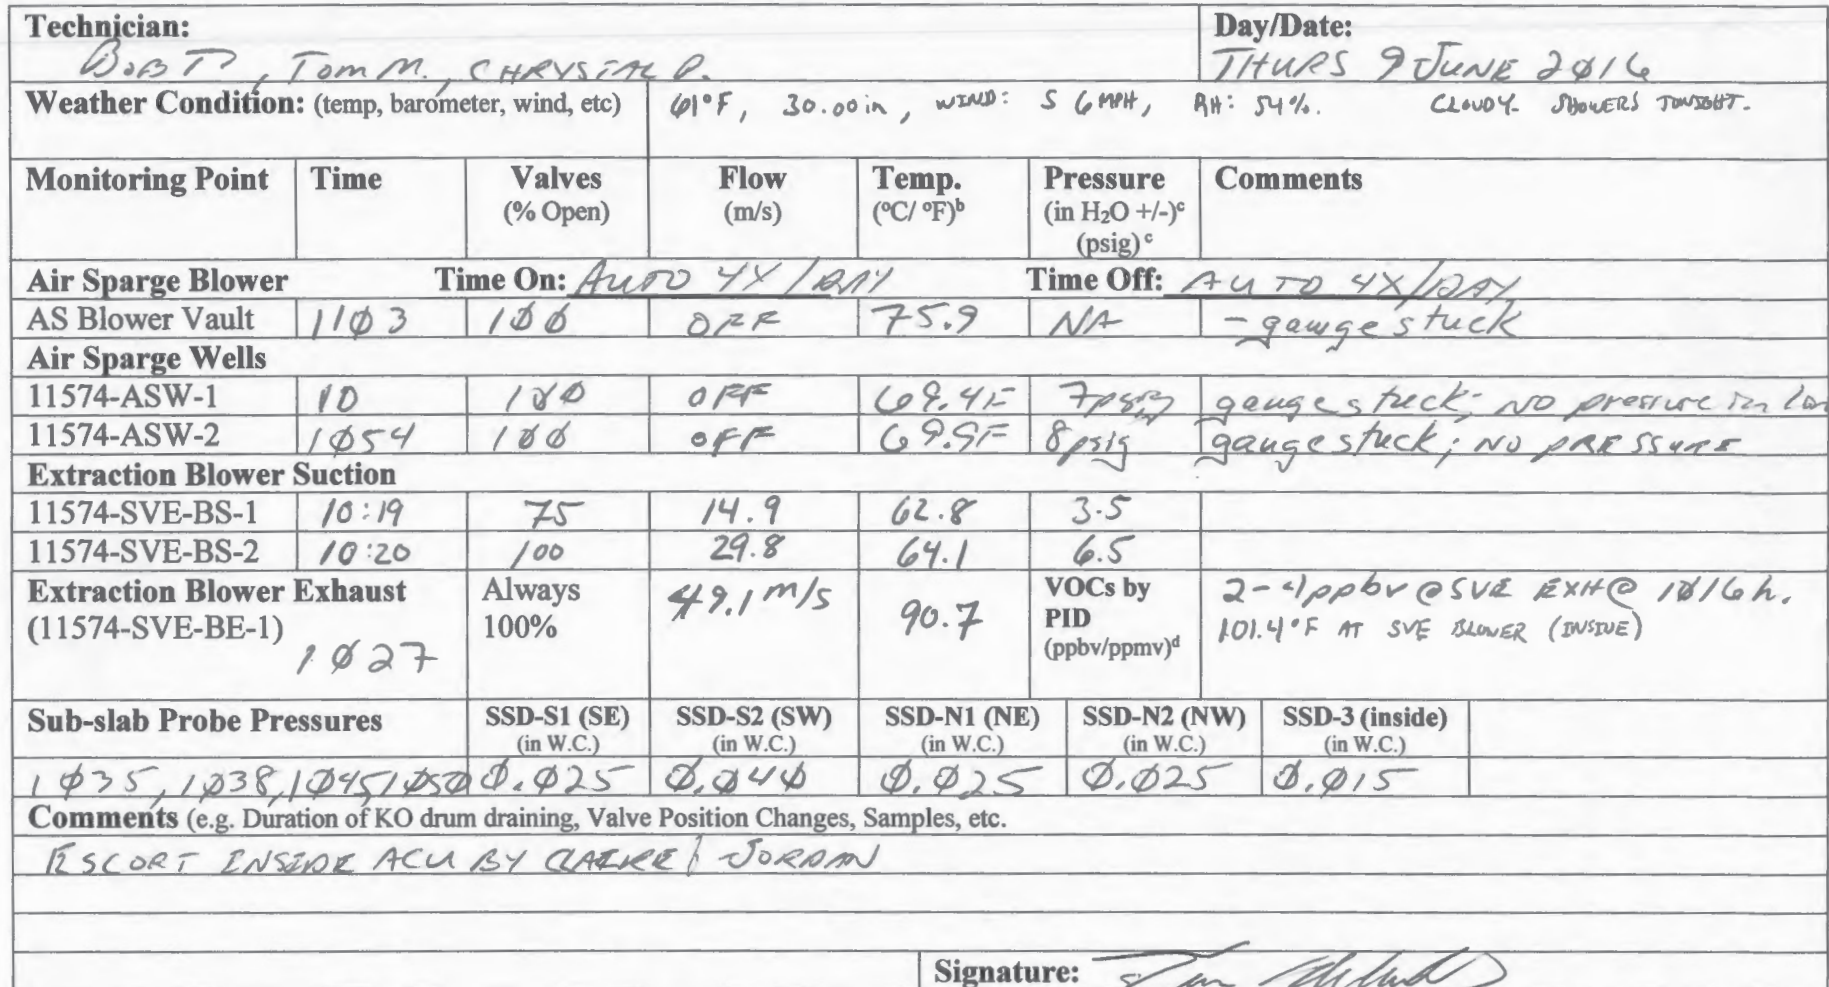 Technician: Day/Date:
Bob T, Tom M., CHRYSTAL P. THURS 9 JUNE 2016
Weather Condition: (temp, barometer, wind, etc) 61°F, 30.00 in, WIND: S 6 MPH, RH: 54%. CLOUDY. SHOWERS TONIGHT.
Monitoring Point Time Valves Flow Temp. Pressure Comments
(% Open) (m/s) (°C/ °F)b (in H2O +/-)c
(psig) c
Air Sparge Blower Time On: AUTO 4X/DAY Time Off: AUTO 4X/DAY
AS Blower Vault 1103 100 OFF 75.9 NA - gauge stuck
Air Sparge Wells
11574-ASW-1 10 100 OFF 69.4F 7psig gauge stuck; NO pressure in
11574-ASW-2 1054 100 OFF 69.9F 8psig gauge stuck; NO PRESSURE
Extraction Blower Suction
11574-SVE-BS-1 10:19 75 14.9 62.8 3.5
11574-SVE-BS-2 10:20 100 29.8 64.1 6.5
Extraction Blower Exhaust Always 49.1 m/s 90.7 VOCs by 2-4ppbv @ SVE EXH @ 1016h.
(11574-SVE-BE-1) 1027 100% PID 101.4°F AT SVE BLOWER (INSIDE)
(ppbv/ppmv)d
Sub-slab Probe Pressures SSD-S1 (SE) SSD-S2 (SW) SSD-N1 (NE) SSD-N2 (NW) SSD-3 (inside)
(in W.C.) (in W.C.) (in W.C.) (in W.C.) (in W.C.)
1035, 1038, 1045, 1050 0.025 0.040 0.025 0.025 0.015
Comments (e.g. Duration of KO drum draining, Valve Position Changes, Samples, etc.
ESCORT INSIDE ACU BY CLAIRE / JORDAN
Signature: